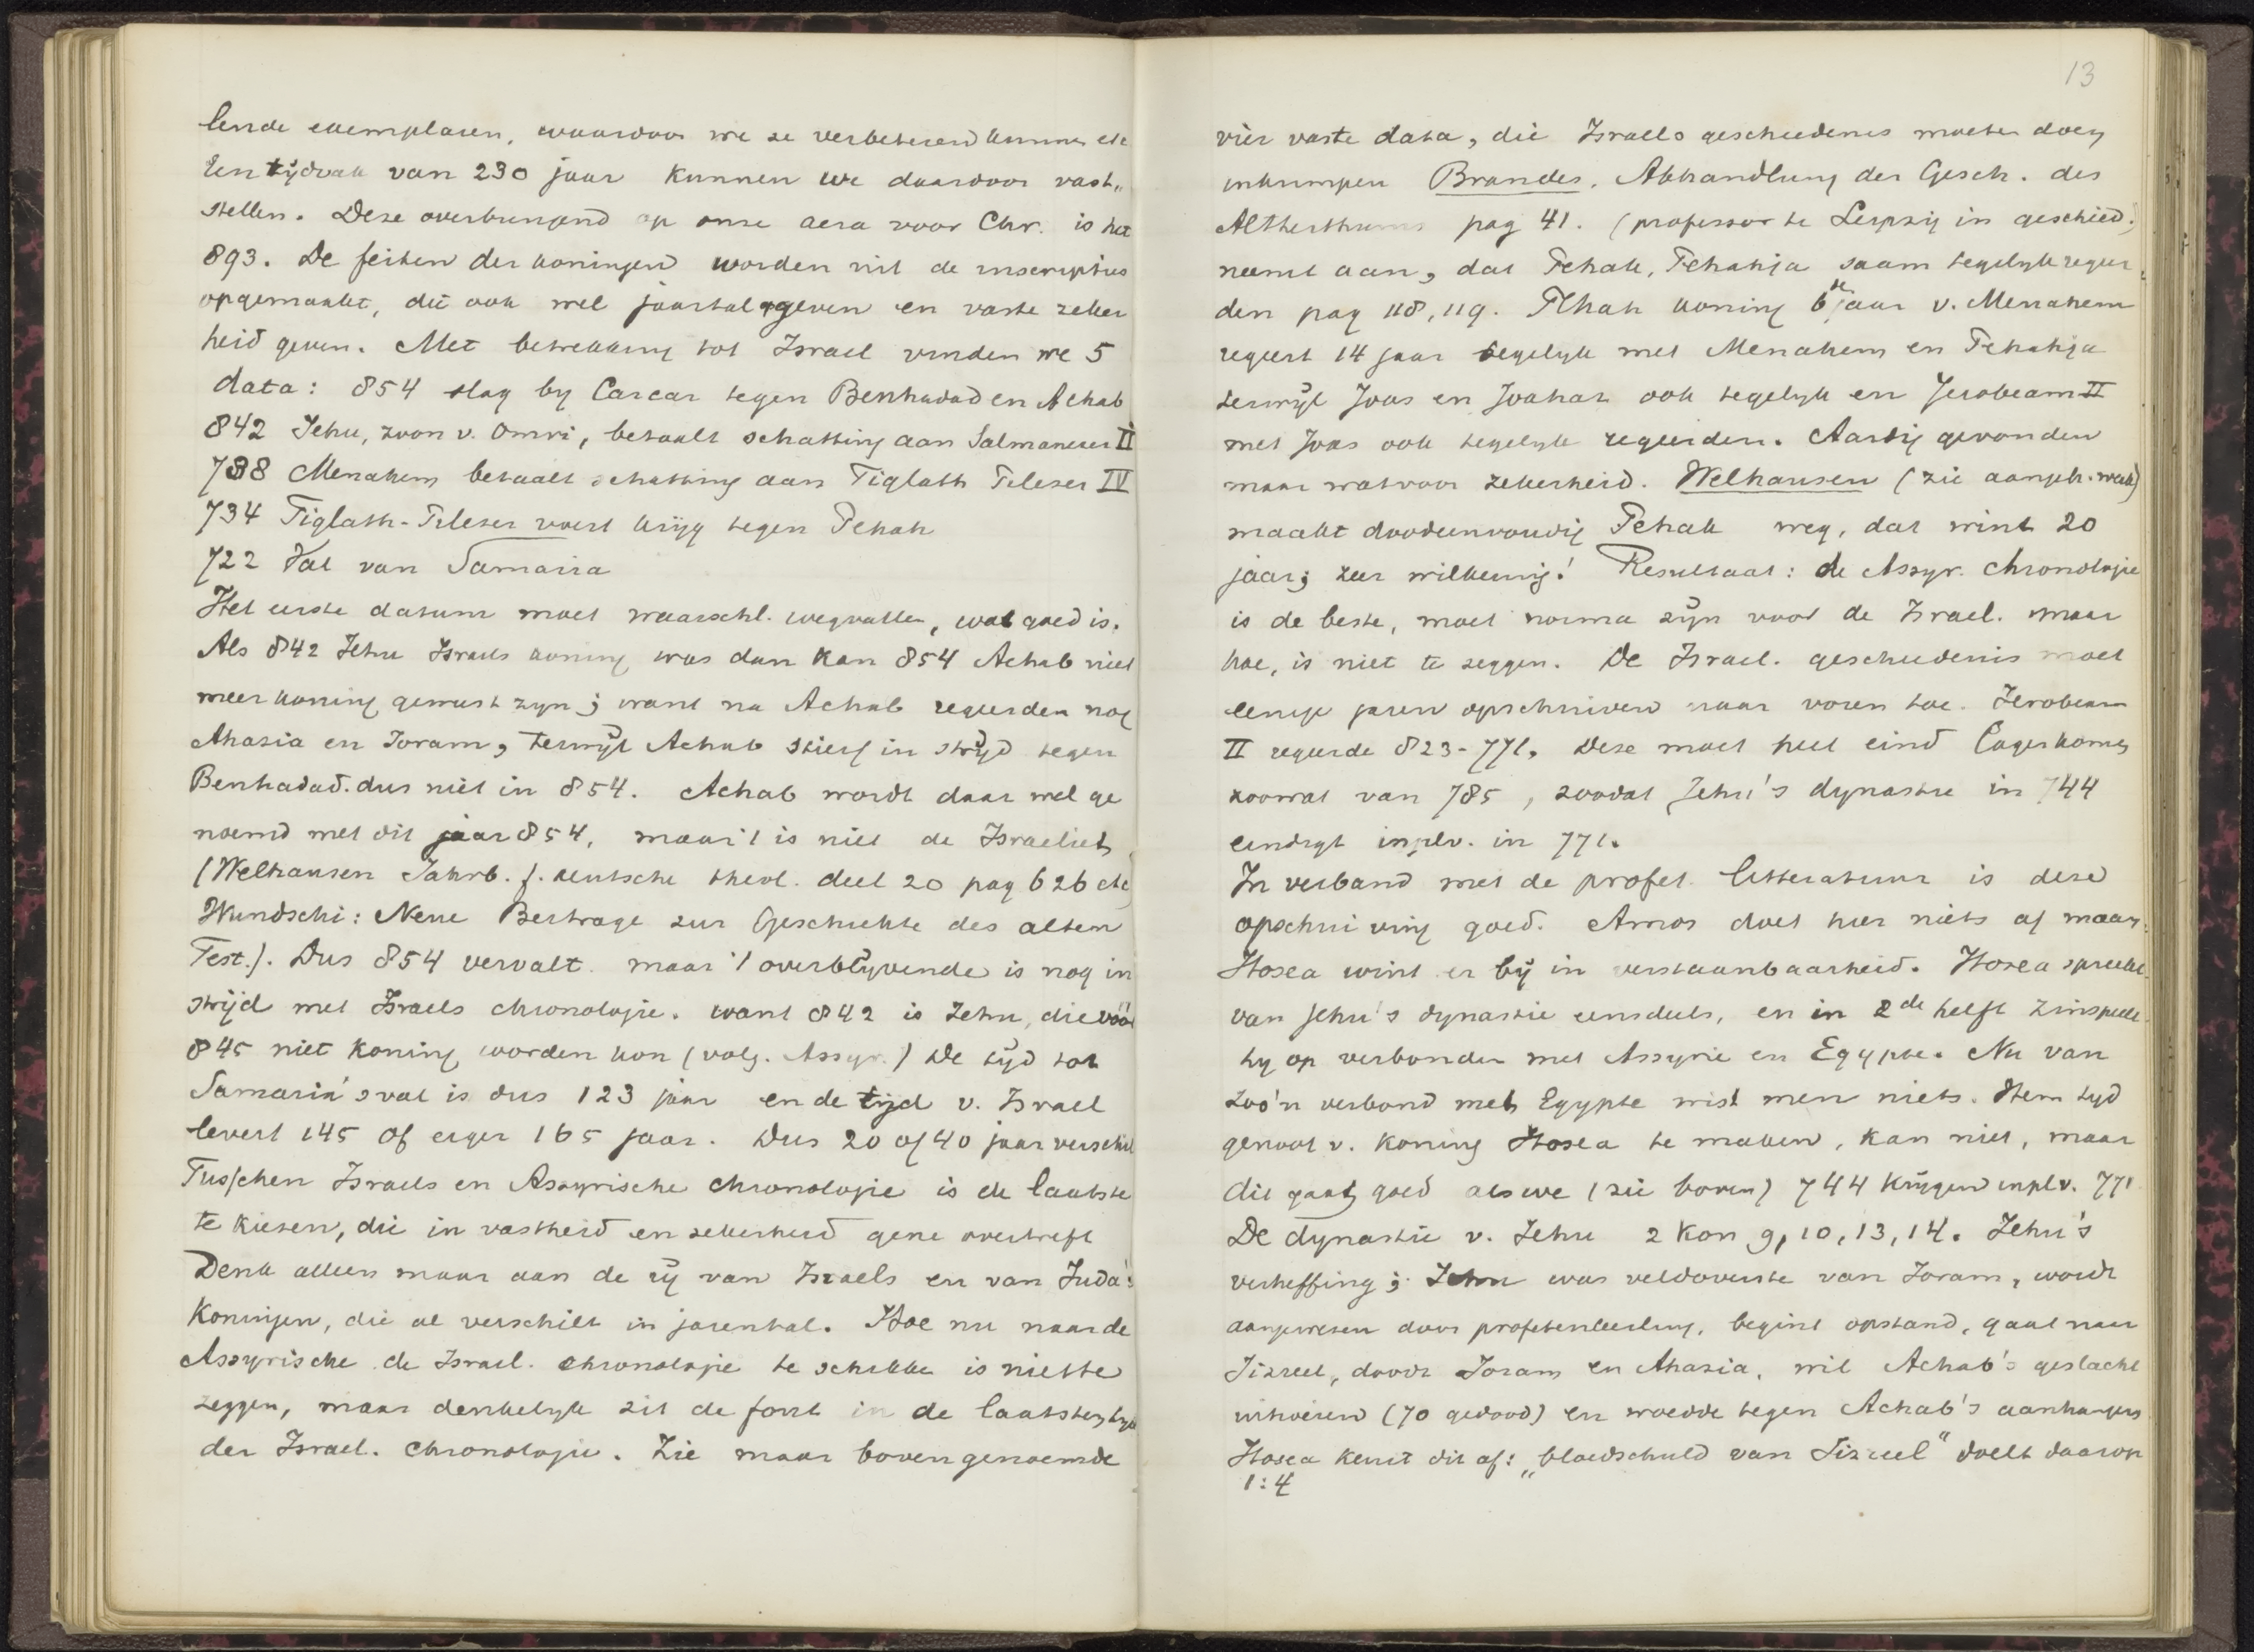 lende exemplaren, waardoor we ze verbeteren kunnen etc
Een tijdvak van 230 jaar kunnen we daardoor vast„
stellen. Deze overbrengend op onze aera voor Chr. is het
893. De feiten der koningen worden uit de inscripties
opgemaakt, die ook wel jaartal geven en vaste zeker
heid geven. Met betrekking tot Israel vinden we 5
data: 854 slag by Carcar tegen Benhadad en Achab
842 Jehu, zoon v. Omri, betaalt schatting aan Salmaneser II
738 Menahem betaalt schatting aan Tiglath Pileser IV
734 Tiglath-Pileser voert krijg tegen Pekah
722 Val van Samaria
Het eerste datum moet waarschl. wegvallen, wat goed is.
Als 842 Jehu Israels koning was dan kan 854 Achab niet
meer koning geweest zyn; want na Achab regeerden nog
Ahazia en Joram, terwijl Achab stierf in strijd tegen
Benhadad. dus niet in 854. Achab wordt daar wel ge
noemd met dit jaar 854, maar 't is niet de Israeliet
(Welhausen Jahrb. f. deutsche theol. deel 20 pag 626 etc)
Wundschi: Neue Beitrage zur Geschichte des alten
Test.). Dus 854 vervalt. maar 't overblyvende is nog in
strijd met Israels chronologie. want 842 is Jehu, die vóór
845 niet koning worden kon (volg. Assyr.) De tijd tot
Samaria's val is dus 123 jaar en de tijd v. Israel
levert 145 of erger 165 jaar. Dus 20 of 40 jaar verschil
Tusschen Israels en Assyrische chronologie is de laatste
te kiezen, die in vastheid en zekerheid gene overtreft
Denk alleen maar aan de rij van Israels en van Juda's
Koningen, die al verschilt in jarental. Hoe nu naar de
Assyrische de Israel. chronologie te schikken is niet te
zeggen, maar denkelyk zit de fout in de laatsten tyd
der Israel. chronologie. Zie maar bovengenoemde
13
vier vaste data, die Israels geschiedenis moeten doen
inkrimpen Brandes, Abhandlung der Gesch. des
Altherthums pag 41. (professor te Leipzig in geschied.)
neemt aan, dat Pekah, Pekahja saam tegelyk regeer
den pag 118, 119. Pekah koning 6e jaar v. Menahem
regeert 14 jaar tegelyk met Menahem en Pekahja
terwijl Joas en Joahaz ook tegelyk en Jerobeam II
met Joas ook tegelyk regeerden. Aardig gevonden
maar watvoor zekerheid. Welhausen (zie aangeh. werk)
maakt doodeenvoudig Pekah weg, dat wint 20
jaar; zeer willkeurig! Resultaat: de Assyr. chronologie
is de beste, moet norma zijn voor de Israel. maar
hoe, is niet te zeggen. De Israel. geschiedenis moet
eenige jaren opschuiven naar voren toe. Jerobeam
II regeerde 823-771. Deze moet heel eind lager komen
zoowat van 785, zoodat Jehu's dynastie in 744
eindigt in plv. in 771.
In verband met de profet. litteratuur is deze
opschuiving goed. Amos doet hier niets af maar
Hosea wint er bij in verstaanbaarheid. Hosea spreekt
van Jehu's dynastie eensdeels, en in 2de helft zinspeelt
hy op verbonden met Assyrie en Egypte. Nu van
zoo'n verbond met Egypte wist men niets. Hem tyd
genoot v. koning Hosea te maken, kan niet, maar
dit gaat goed als we (zie boven) 744 krijgen inplv. 771
De dynastie v. Jehu 2 Kon 9, 10, 13, 14. Jehu's
verheffing; Jehu was veldoverste van Joram, wordt
aangewezen door profetenleerling, begint opstand, gaat naar
Jizreel, doodt Joram en Ahazia, wil Achab's geslacht
uitroeien (70 gedood) en woedde tegen Achab's aanhangers
Hosea keurt dit af: „bloedschuld van Jizreel" doelt daarop
1:4